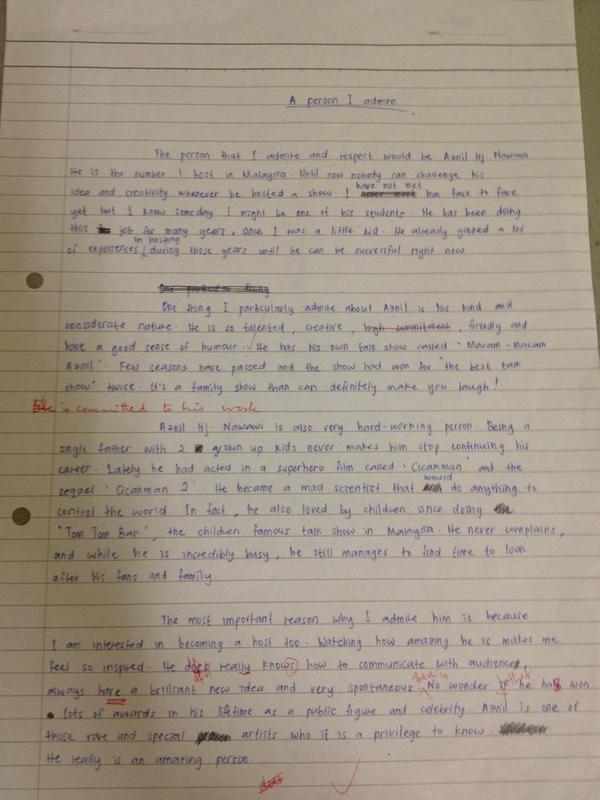 NO:
DATE:
A person I admire
The person that I admire and respect would be Aznil Hj. Nawawi
He is the number 1 host in Malaysia. Until now nobody can challenge his
idea and creativity whenever he hosted a show. I never meet have not met him face to face
yet but I know someday I might be one of his students. He has been doing
this job for many years, once I was a little kid. He already gained a lot
of experiences in hosting during those years until he can be successful right now.
One particular thing
One thing I particularly admire about Aznil is his kind and
considerate nature. He is so talented, creative, high commitment, firedly and
have a good sense of humour. He has his own talk show called 'Macam-Macam
Aznil'. Few seasons have passed and the show had won for 'the best talk
show' twice. It's a family show than can definitely make you laugh!
He is committed to his work
Aznil Hj. Nawawi is also very hard-working person. Being a
single father with 2 grown up kids never makes him stop continuing his
career. Lately he had acted in a superhero film called 'Cicakman' and the
sequel 'Cicakman 2'. He became a mad scientist that would do anything to
control the world. In fact, he also loved by children since doing
'Tom Tom Bak', the children famous talk show in Malaysia. He never complains,
and while he is incredibly busy, he still manages to find time to look
after his fans and family.
The most important reason why I admire him is because
I am interested in becoming a host too. Watching how amazing he is makes me
feel so inspired. He does really knows how to communicate with audience,
always have a brilliant new idea and very spontaneous. No wonder if he has won
lots of awards in his lifetime as a public figure and celebrity. Aznil is one of
those rare and special artists who it is a privilege to know.
He really is an amazing person.